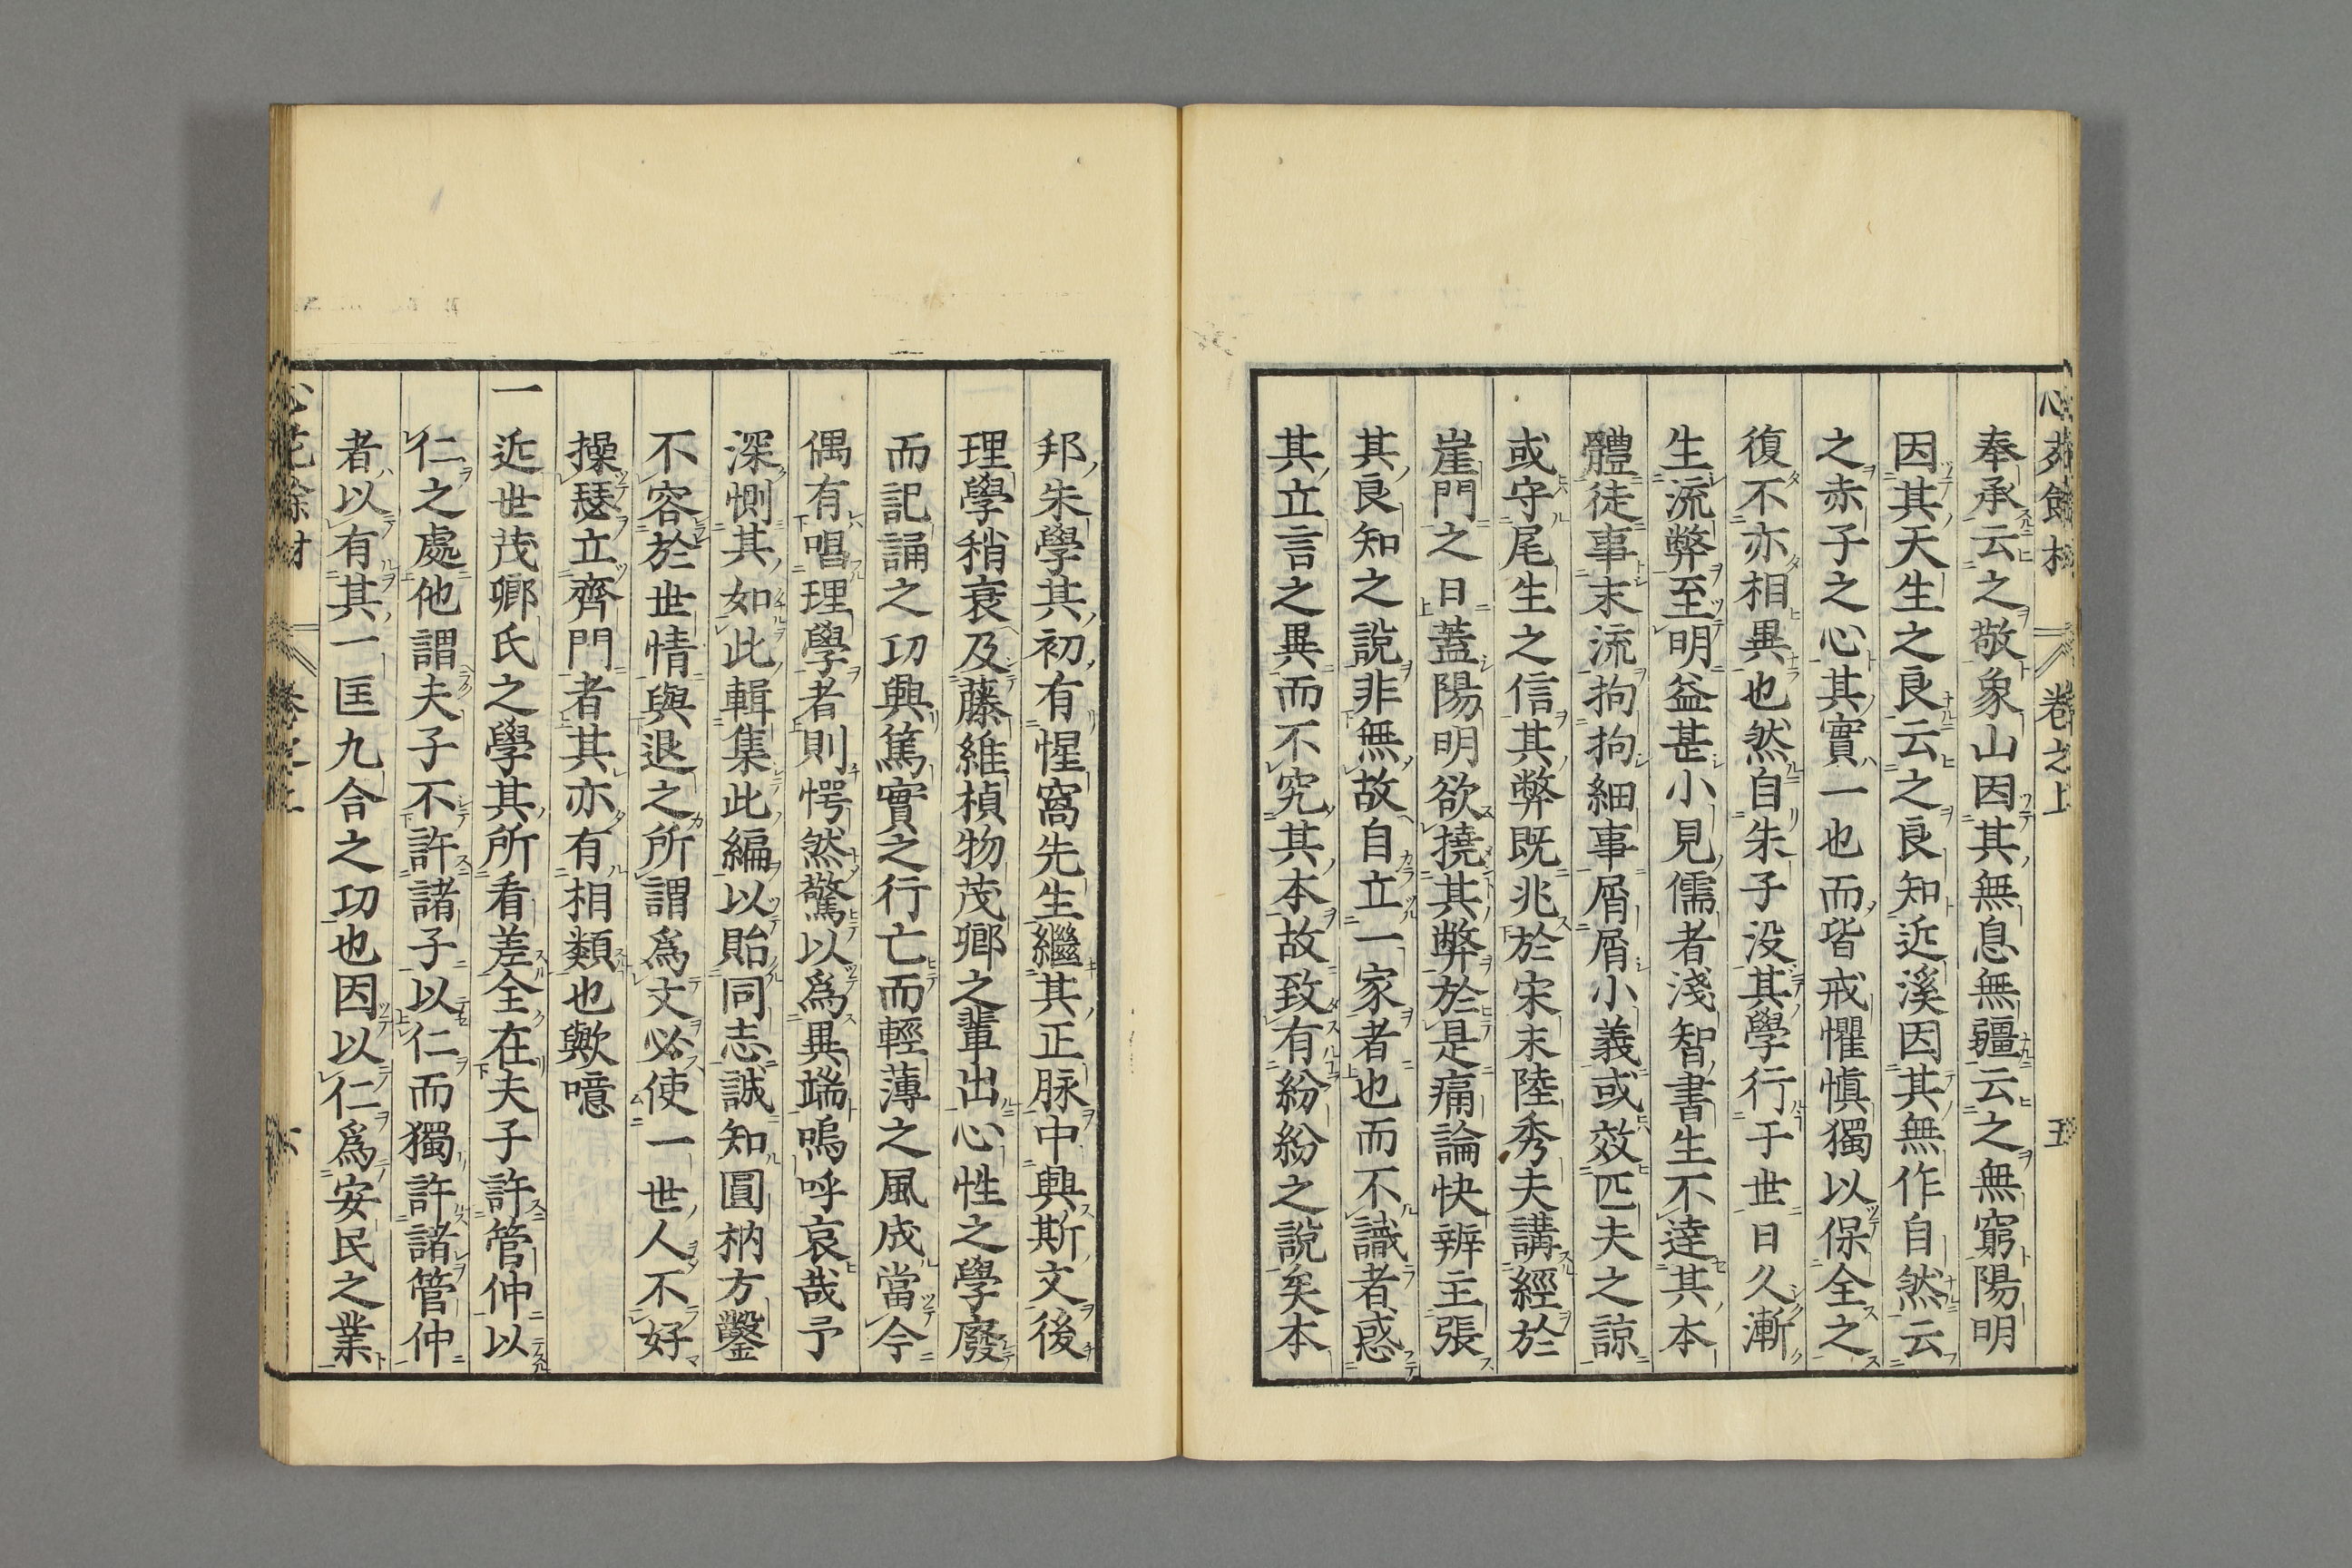 卷之上
五
奉承云之敬象山因其無息無疆云之無窮陽明
因其天生之良云之良知近溪因其無作自然云
之赤子之心其實一也而皆戒懼愼獨以保全之
復不亦相異也然自朱子没其學行于世日久漸
生流弊至明益甚小見儒者淺智書生不達其本
體徒事末流拘拘細事屑屑小義或效匹夫之諒
或守尾生之信其弊既兆於宋末陸秀夫講經於
崖門之日蓋陽明欲撓其弊於是痛論快辨主張
其良知之說非無故自立一家者也而不識者惑
其立言之異而不究其本故致有紛紛之說矣本
邦朱學其初有惺窩先生繼其正脉中興斯文後
理學稍衰及藤維楨物茂卿之輩出心性之學廢
而記誦之功興篤實之行亡而輕薄之風成當今
偶有唱理學者則愕然驚以爲異端嗚呼哀哉予
深惻其如此輯集此編以貽同志誠知圓枘方鑿
不容於世情與退之所謂爲文必使一世人不好
操瑟立齊門者其亦有相類也歟噫
一近世茂卿氏之學其所看差全在夫子許管仲以
仁之處他謂夫子不許諸子以仁而獨許諸管仲
者以有其一匡九合之功也因以仁爲安民之業